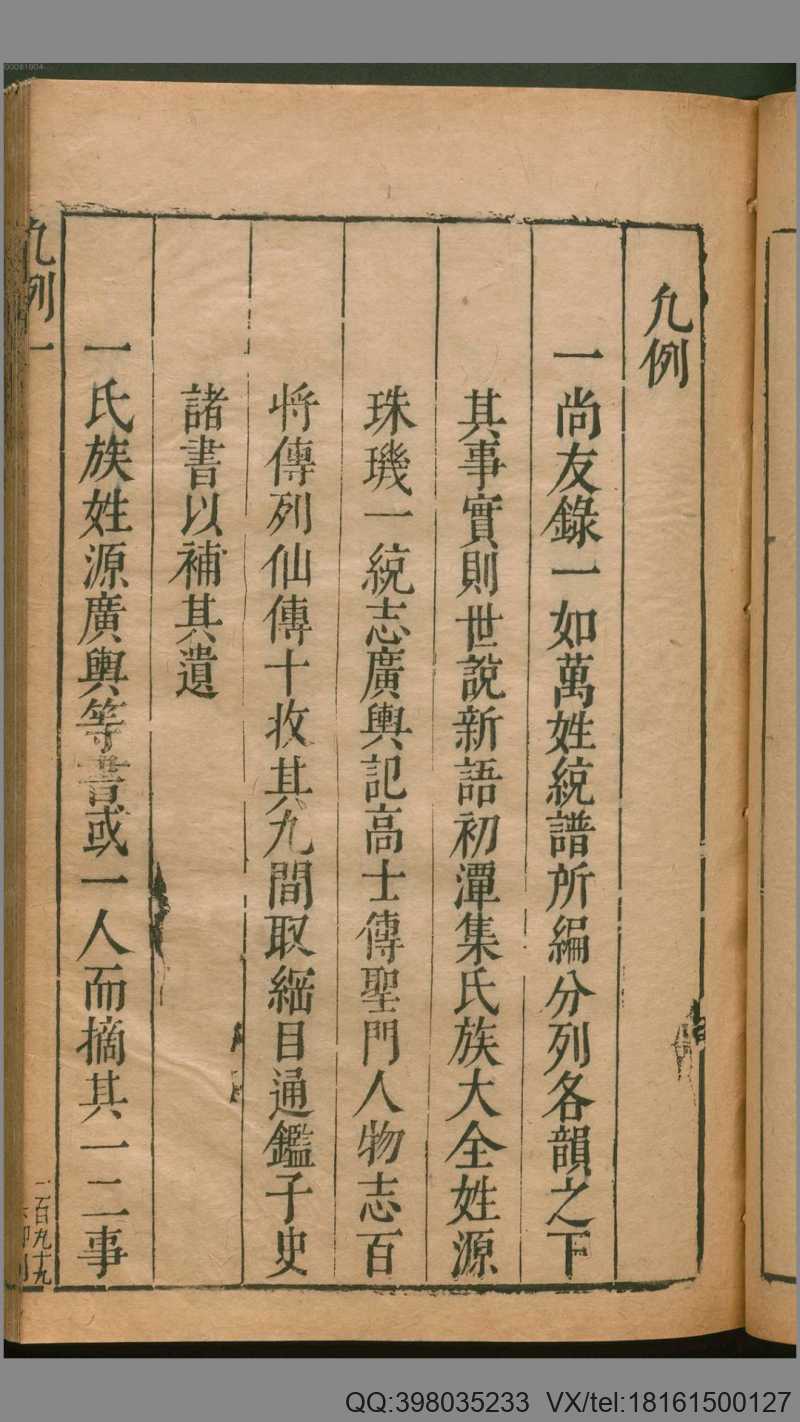 凡例
一尚友錄一如萬姓統譜所編分列各韻之下
其事實則世說新語初潭集氏族大全姓源
珠璣一統志廣輿記高士傳聖門人物志百
將傳列仙傳十收其九間取綱目通鑑子史
諸書以補其遺
一氏族姓源廣輿等書或一人而摘其一二事
凡例 一
一百九十九
QQ:398035233 VX/tel:18161500127